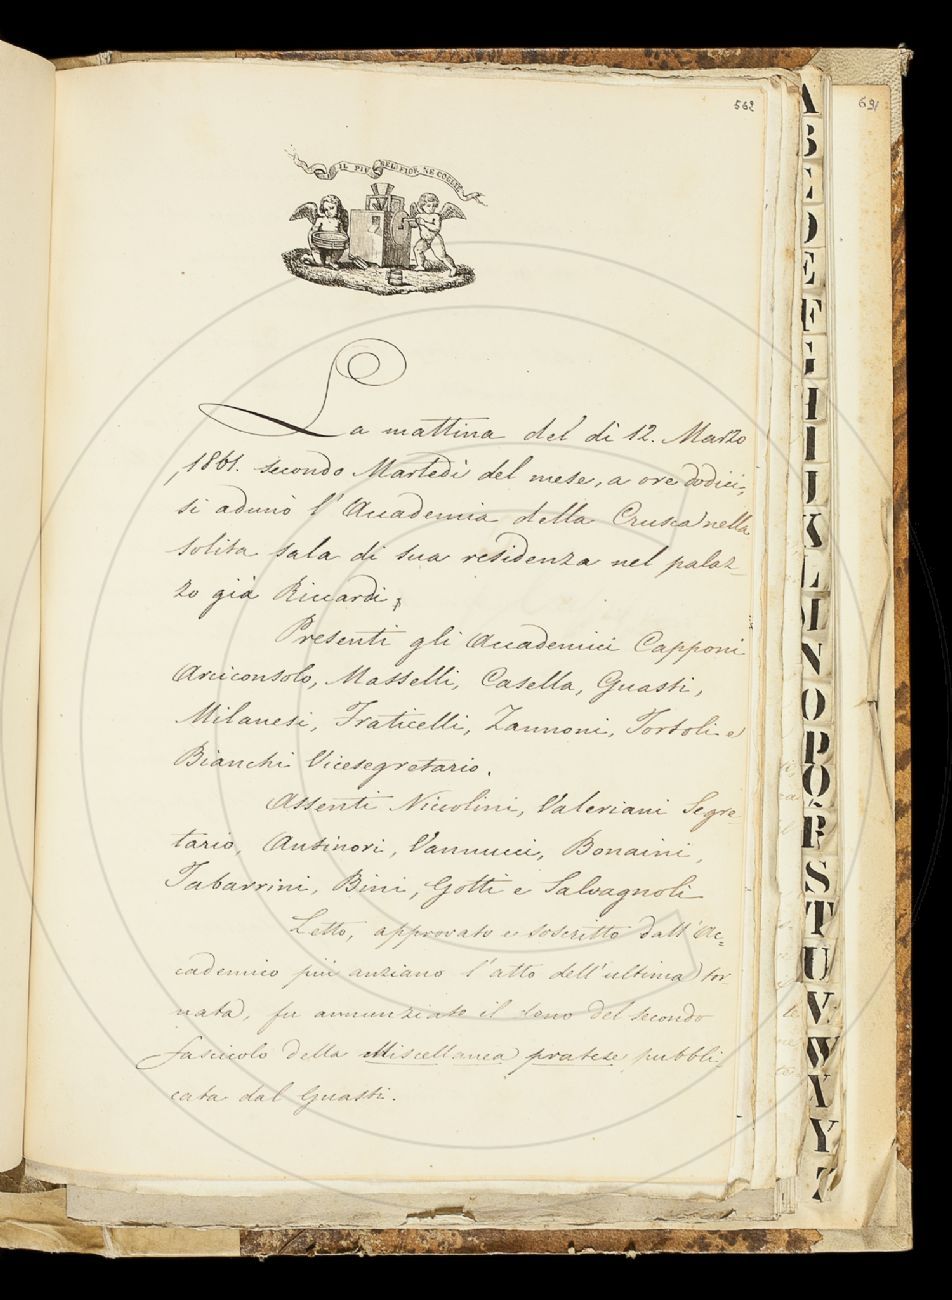 562
691
IL PIÙ BEL FIOR NE COGLIE
La mattina del dì 12. Marzo
1861. secondo Martedì del mese, a ore dodici,
si adunò l'Accademia della Crusca nella
solita sala di sua residenza nel palaz-
zo già Riccardi.
Presenti gli Accademici Capponi
Arciconsolo, Masselli, Casella, Guasti,
Milanesi, Fraticelli, Zannoni, Tortoli e
Bianchi Vicesegretario.
Assenti Niccolini, Valeriani Segre
tario, Antinori, Vannucci, Bonaini,
Tabarrini, Bini, Gotti e Salvagnoli
Letto, approvato e soscritto dall'Ac=
cademico più anziano l'atto dell'ultima tor
nata, fu annunziato il dono del secondo
fascicolo della Miscellanea pratese pubbli
cata dal Guasti.
A
B
C
D
E
F
G
H
I
J
K
L
M
N
O
P
Q
R
S
T
U
V
W
X
Y
Z